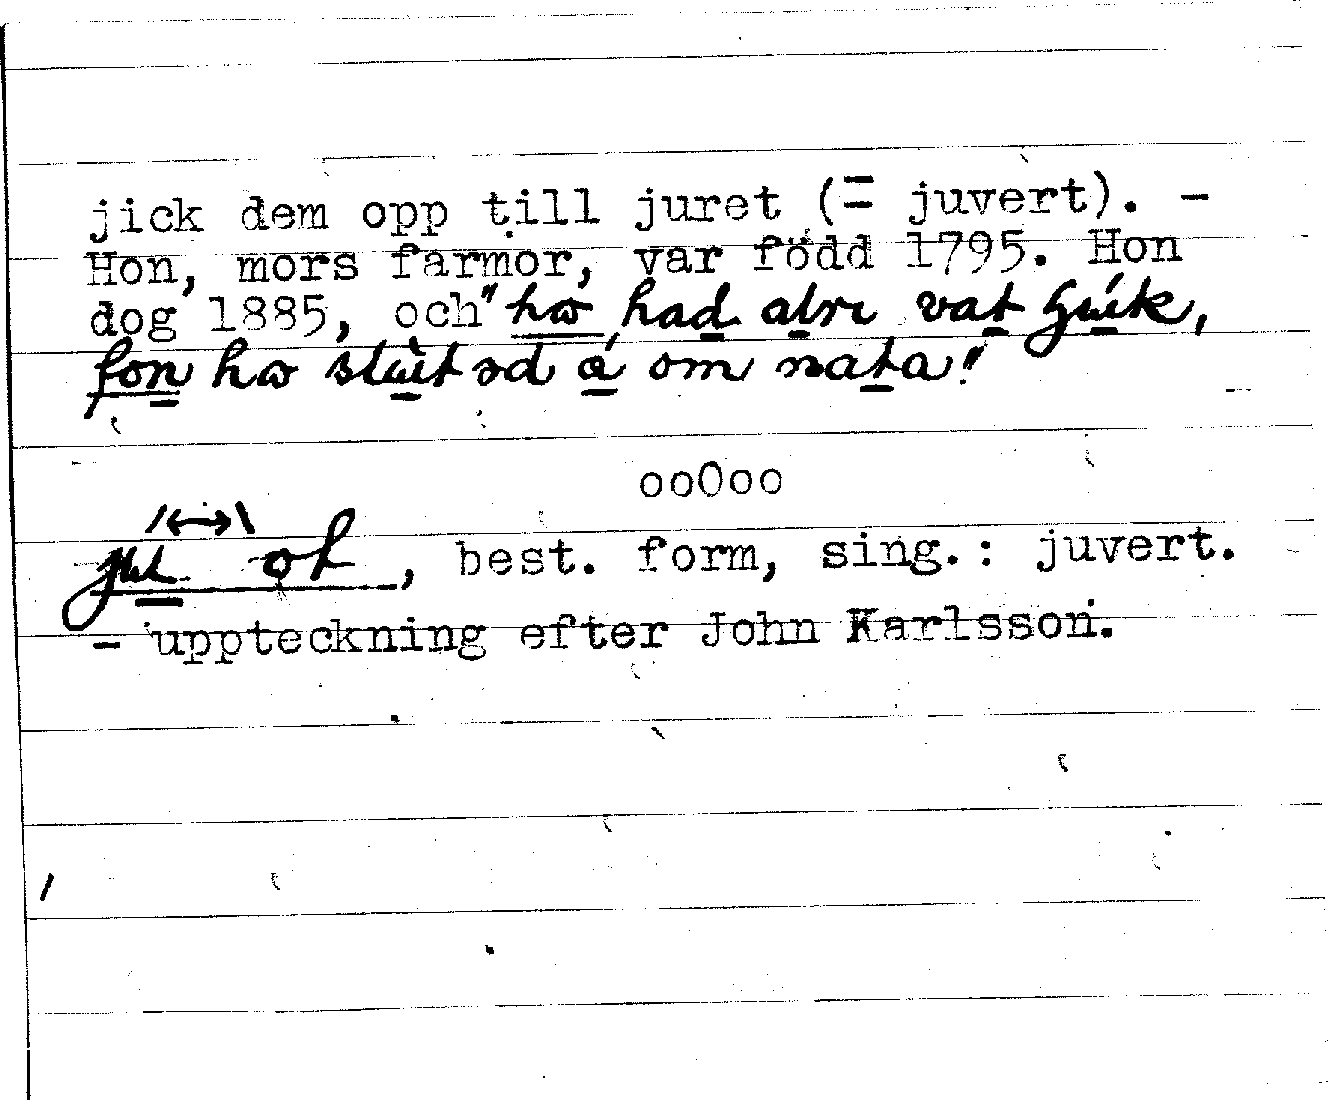 jick dem opp till juret (= juvert). -
Hon, mors farmor, var född 1795. Hon
dog 1885, och "hɷ had alri vat sjuk,
fɷn hɷ slutəd å om nata!"
ooOoo
best. form, sing.: juvert.
- uppteckning efter John Karlsson.